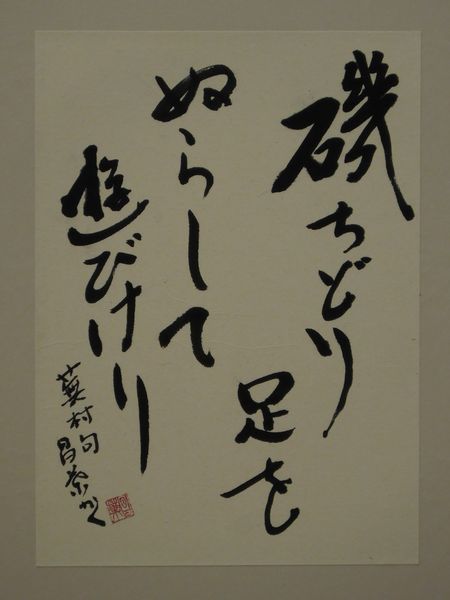 磯ちどり足を
ぬらして
遊びけり
蕪村句